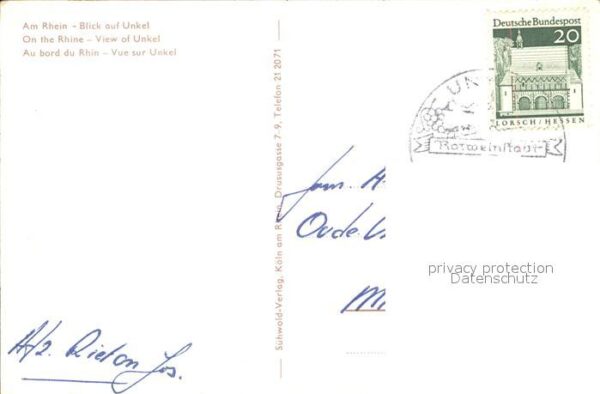 Am Rhein – Blick auf Unkel
On the Rhine – View of Unkel
Au bord du Rhin – Vue sur Unkel
Deutsche Bundespost
20
LORSCH/HESSEN
UN
Rotweinstadt
Sühwold-Verlag, Köln am Rhein, Drususgasse 7-9, Telefon 21 20 71
Fam.
Oude
privacy protection
Datenschutz